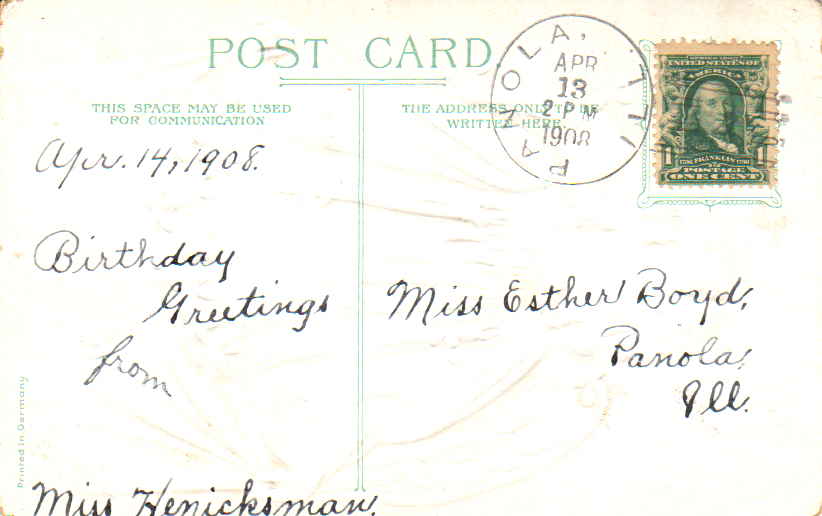 POST CARD
THIS SPACE MAY BE USED
FOR COMMUNICATION
THE ADDRESS ONLY TO BE
WRITTEN HERE
PANOLA, ILL.
APR
13
2 PM
1908
UNITED STATES OF
AMERICA
1 FRANKLIN 1
POSTAGE
ONE CENT
Apr. 14, 1908.
Birthday
Greetings
from
Miss Henicksman.
Miss Esther Boyd,
Panola,
Ill.
Printed in Germany